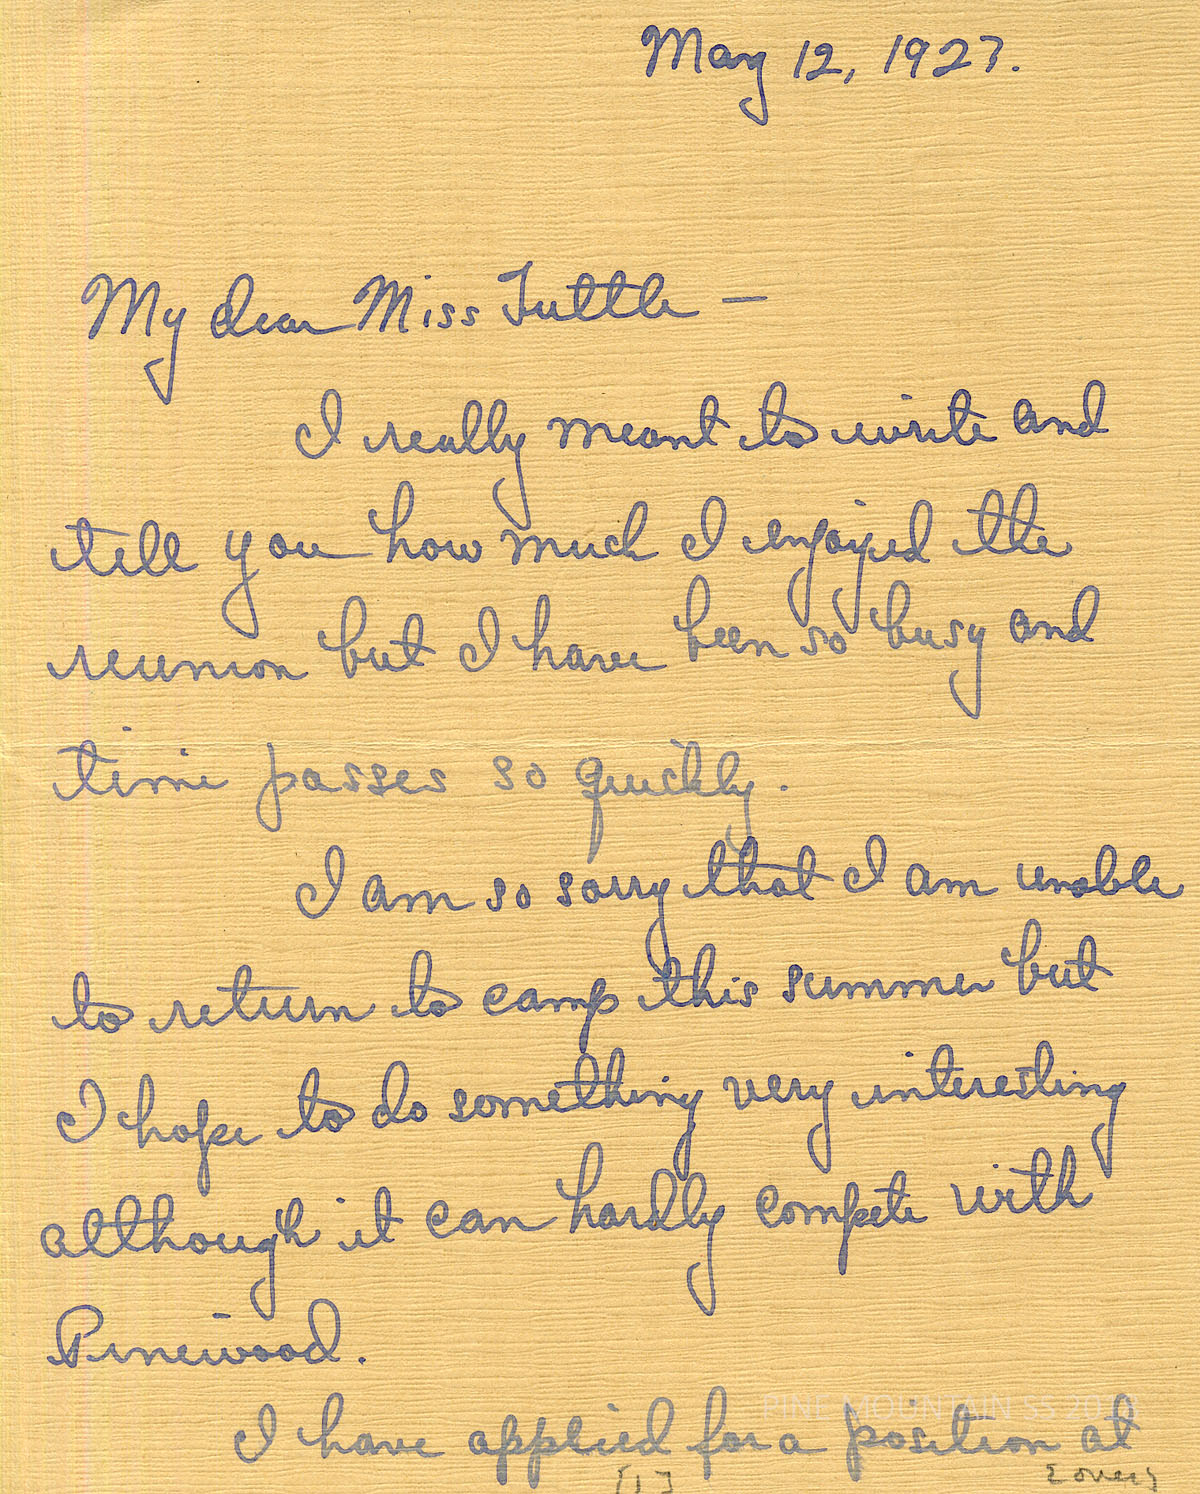 May 12, 1927.
My dear Miss Tuttle —
I really meant to write and
tell you how much I enjoyed the
reunion but I have been so busy and
time passes so quickly.
I am so sorry that I am unable
to return to camp this summer but
I hope to do something very interesting
although it can hardly compete with
Pinewood.
PINE MOUNTAIN SS 2018
I have applied for a position at
[1] [over]